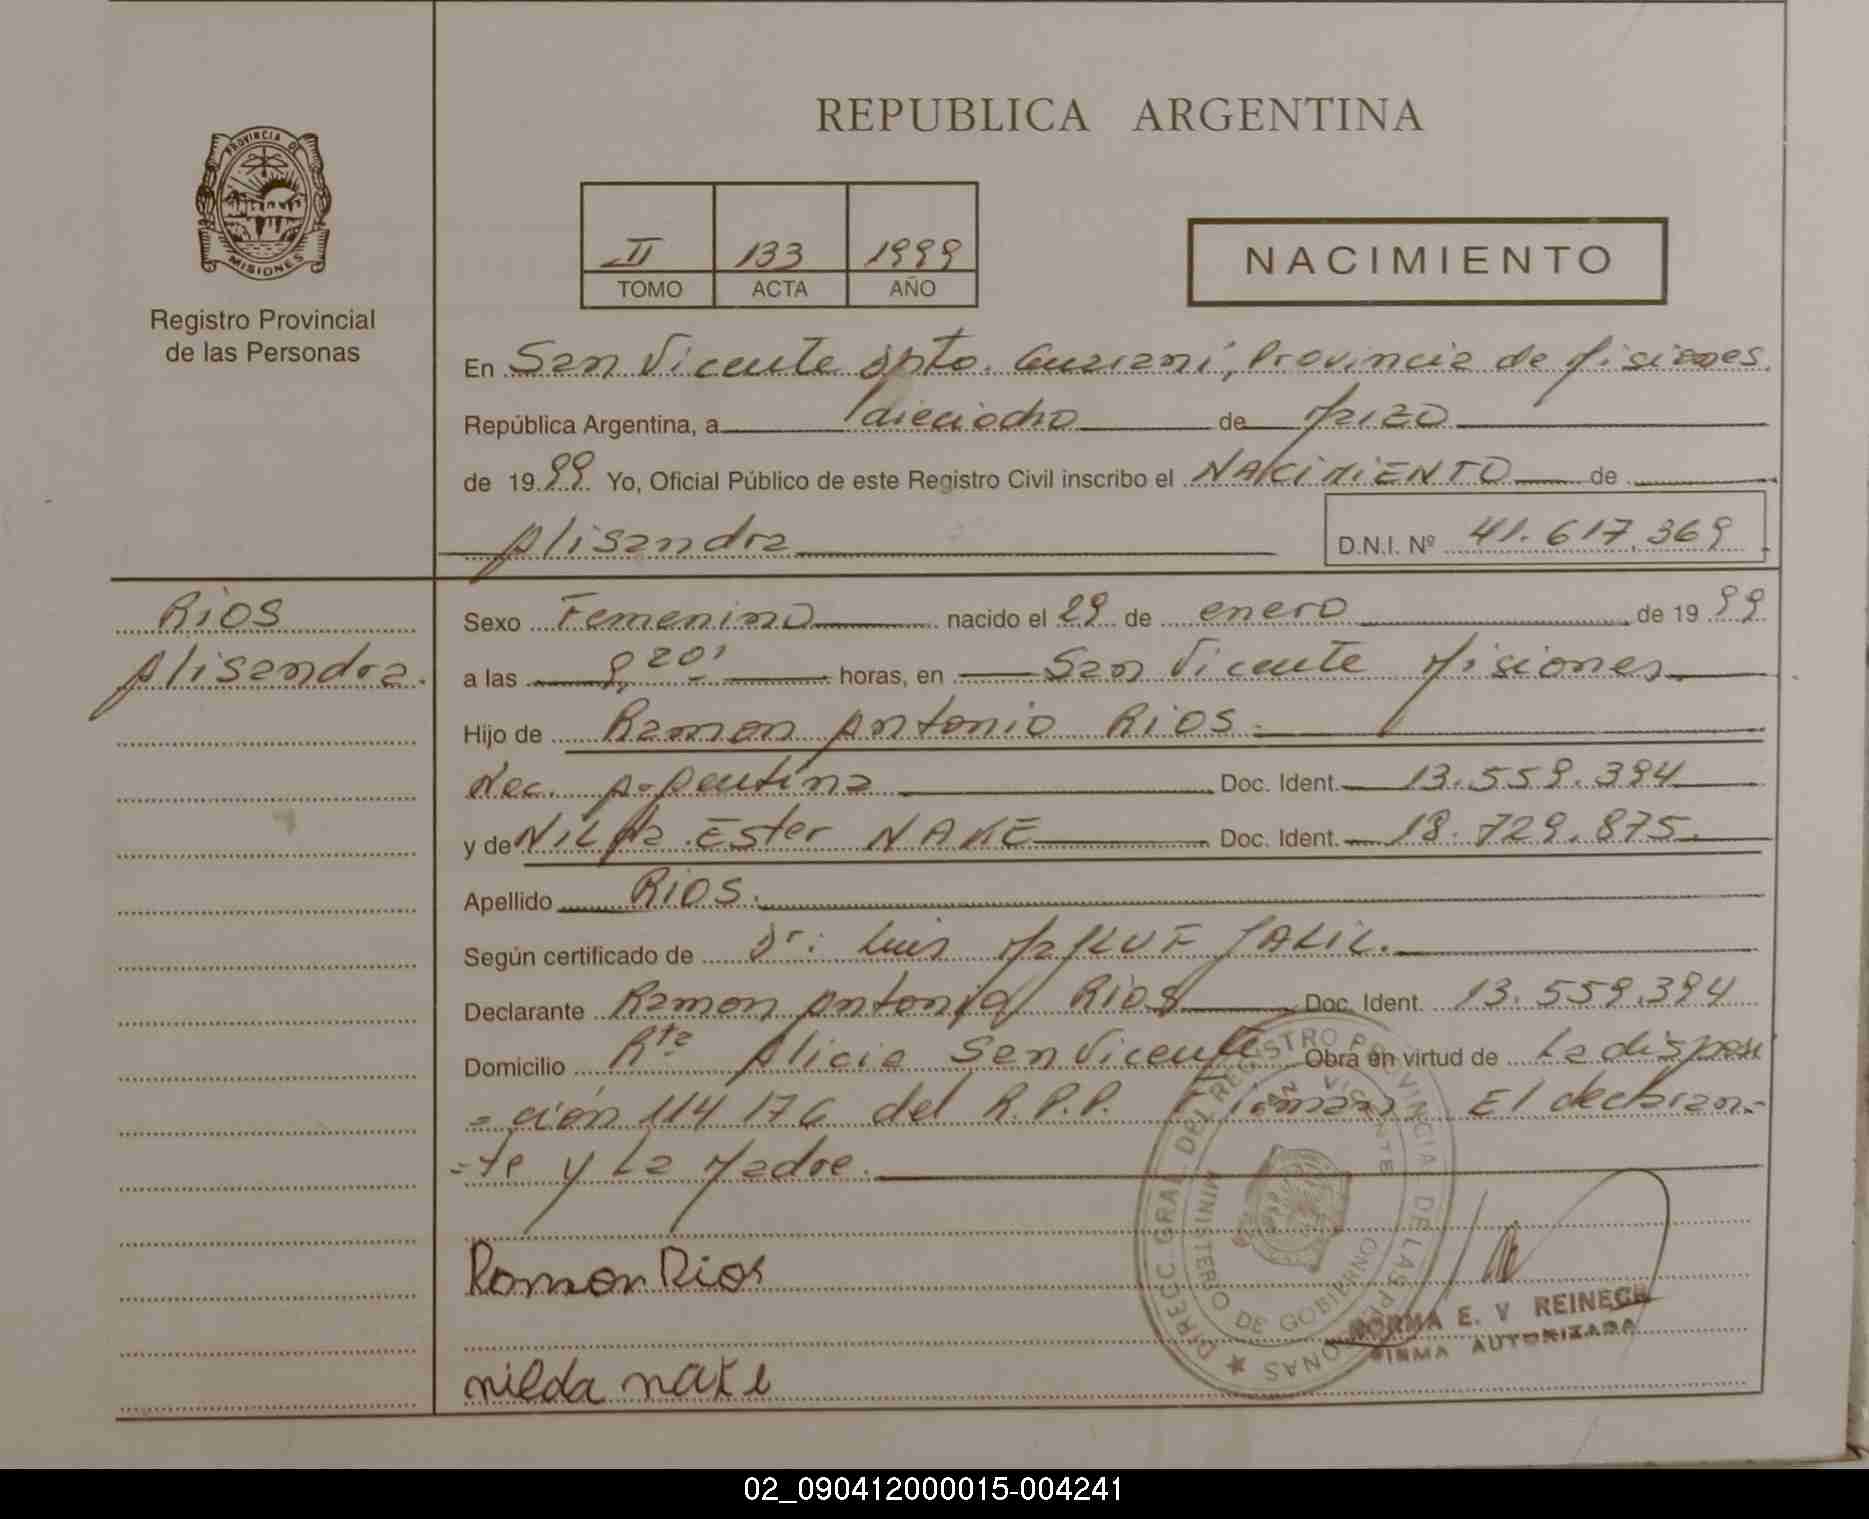 REPUBLICA ARGENTINA
PROVINCIA DE
MISIONES
Registro Provincial
de las Personas
II 133 1999
TOMO ACTA AÑO
NACIMIENTO
En San Vicente Dpto. Guarani, Provincia de Misiones.
República Argentina, a dieciocho de Marzo
de 1999 Yo, Oficial Público de este Registro Civil inscribo el NACIMIENTO de
Alisandra
D.N.I. Nº 41.617.369
RIOS
Alisandra.
Sexo Femenino nacido el 29 de enero de 1999
a las 8,20' horas, en San Vicente Misiones.
Hijo de Ramon Antonio RIOS.
Nac. Argentina Doc. Ident. 13.559.394
y de NILDA Ester NAKE Doc. Ident. 18.729.875.
Apellido RIOS.
Según certificado de Dr: Luis JALIL.
Declarante Ramon Antonio Rios Doc. Ident. 13.559.394
Domicilio Rta Alicia San Vicente Obra en virtud de La disposi
=ción 114176 del R.P.P. Firman El declaran-
-te y La Madre.
Ramon Rios
nilda nake
DIREC. GRAL DEL REGISTRO PROVINCIAL DE LAS PERSONAS
MINISTERIO DE GOBIERNO
SAN VICENTE
NORMA E. V REINECK
FIRMA AUTORIZADA
02_090412000015-004241